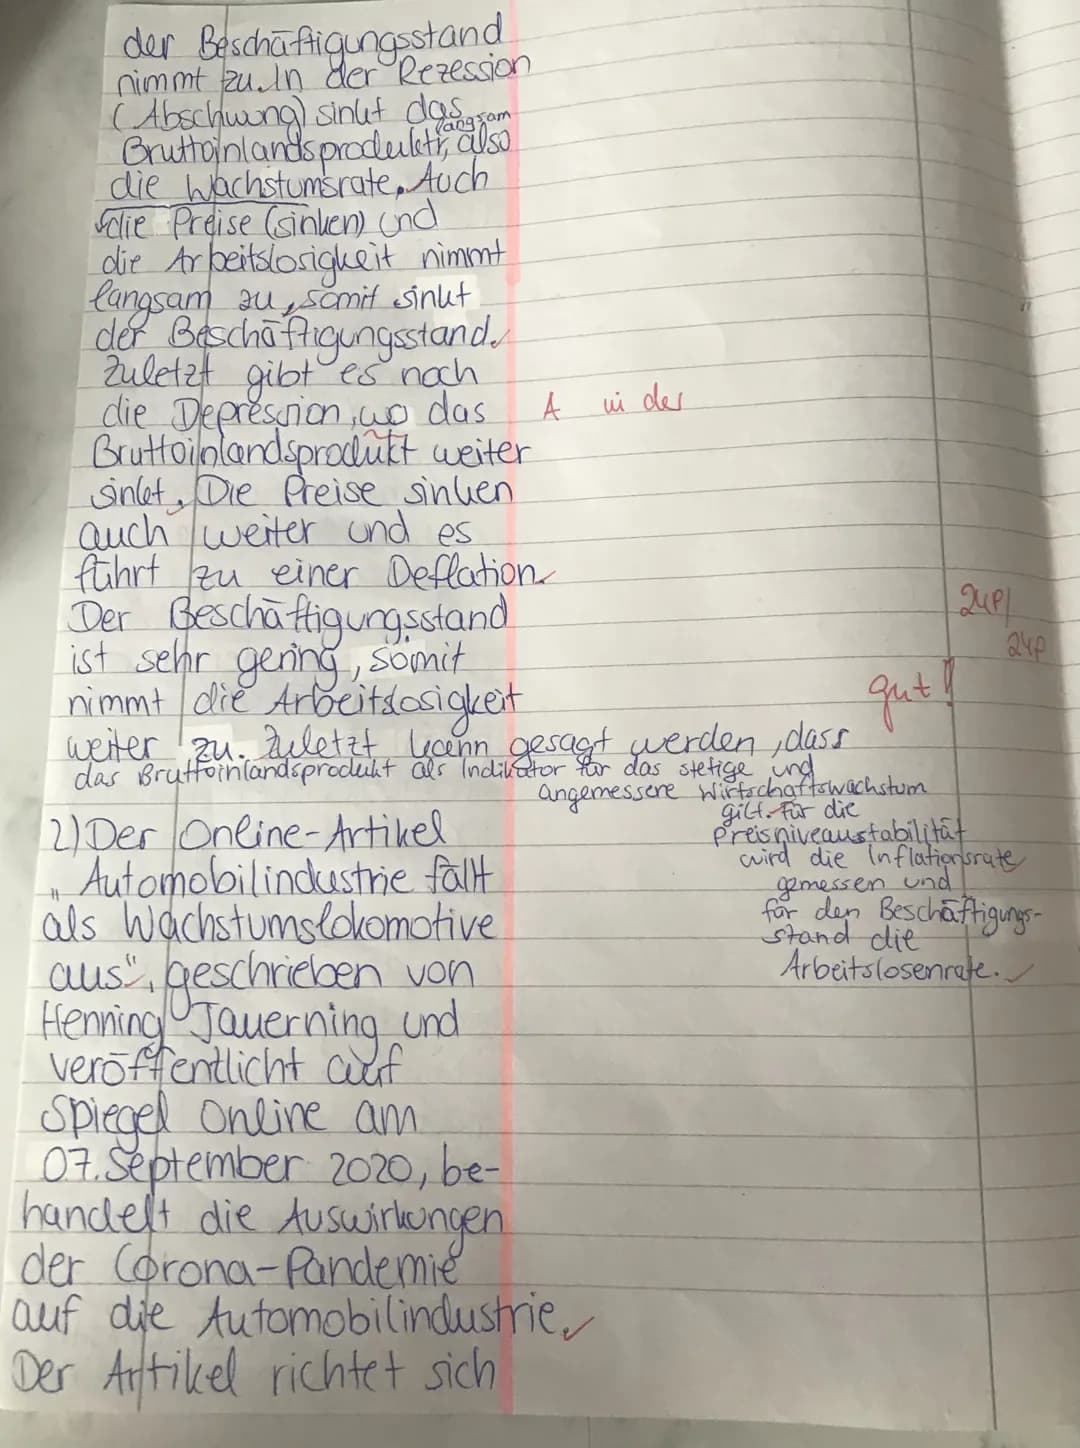 der Beschäftigungsstand
nimmt zu. In der Rezession
(Abschwung) sinkt das
langsam
Bruttoinlandsprodukt, also
die Wachstumsrate. Auch
die Preise (sinken) und
die Arbeitslosigkeit nimmt
langsam zu, somit sinkt
der Beschäftigungsstand.
Zuletzt gibt es noch
die Depression, wo das A in der
Bruttoinlandsprodukt weiter
sinkt. Die Preise sinken
auch weiter und es
führt zu einer Deflation.
Der Beschäftigungsstand
ist sehr gering, somit
nimmt die Arbeitslosigkeit
weiter zu. Zuletzt kann gesagt werden, dass
das Bruttoinlandsprodukt als Indikator für das stetige und
angemessere Wirtschaftswachstum
gilt. Für die
Preisniveaustabilität
wird die Inflationsrate
gemessen und
für den Beschäftigungs-
stand die
Arbeitslosenrate.
24P/
24P
gut!
2) Der Online-Artikel
„Automobilindustrie fällt
als Wachstumslokomotive
aus", geschrieben von
Henning Jauerning und
veröffentlicht auf
Spiegel Online am
07. September 2020, be-
handelt die Auswirkungen
der Corona-Pandemie
auf die Automobilindustrie.
Der Artikel richtet sich